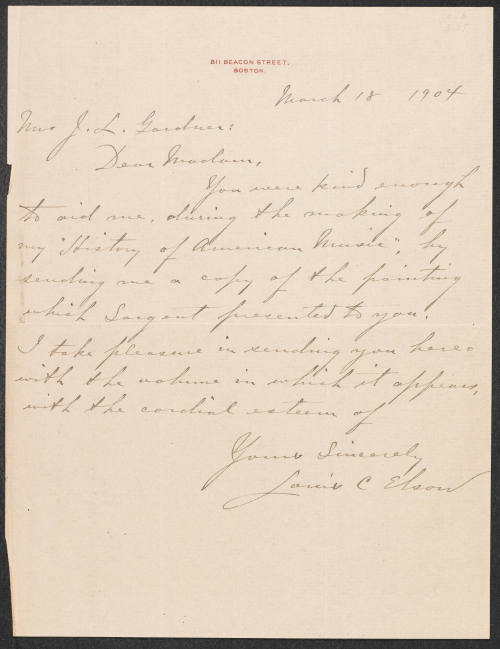 811 BEACON STREET,
BOSTON.
March 18 1904
Mrs J. L. Gardner:
Dear Madam,
You were kind enough
to aid me, during the making of
my "History of American Music", by
sending me a copy of the painting
which Sargent presented to you.
I take pleasure in sending you here-
with the volume in which it appears,
with the cordial esteem of
Yours Sincerely
Louis C Elson